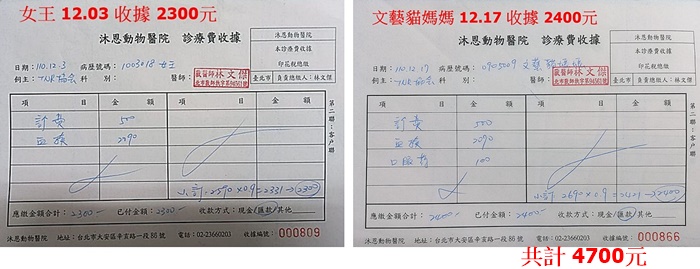 女王 12.03 收據 2300元
沐恩動物醫院 診療費收據
沐恩動物醫院
本診療費收據
印花稅總繳
臺北市 負責總繳人:林文傑
日期:110.12.3 病歷號碼:1003018 女王
飼主:TNR協会 科 別: 醫師:
獸醫師林文傑
項 目 金 額 項 目 金 額
診費 500
血檢 2090
小計:2590×0.9=2331→2300
應繳金額合計:2300- 已付金額:2300- 收款方式:現金/匯款/其他
沐恩動物醫院 地址:台北市大安區辛亥路一段86號 電話:02-23660203 收據編號:000809
第二聯:客戶聯
文藝貓媽媽 12.17 收據 2400元
沐恩動物醫院 診療費收據
沐恩動物醫院
本診療費收據
印花稅總繳
臺北市 負責總繳人:林文傑
日期:110.12.17 病歷號碼:0905009 文藝貓媽媽
飼主:TNR協会 科 別: 醫師:
獸醫師林文傑
項 目 金 額 項 目 金 額
診費 500
血檢 2090
口服藥 100
小計:2690×0.9=2421→2400
應繳金額合計:2400- 已付金額:2400- 收款方式:現金/匯款/其他
沐恩動物醫院 地址:台北市大安區辛亥路一段86號 電話:02-23660203 收據編號:000866
第二聯:客戶聯
共計 4700元